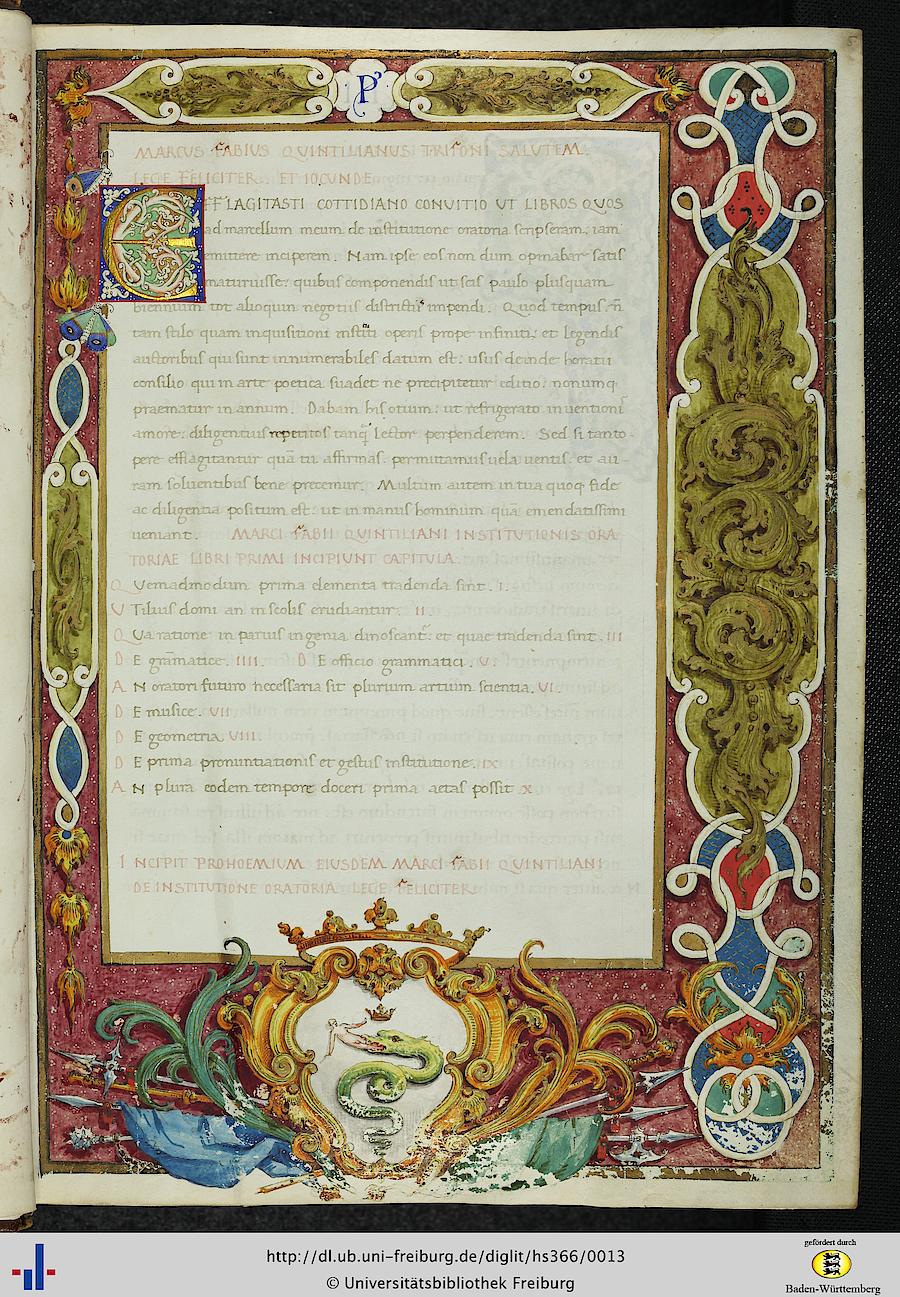 P'
MARCUS FABIUS QUINTILIANUS TRIFONI SALUTEM.
LEGE FELICITER. ET IOCUNDE
EFFLAGITASTI COTTIDIANO CONVITIO UT LIBROS QUOS
ad marcellum meum de institutione oratoria scripseram. iam
emittere inciperem. Nam ipse eos non dum opinabar satis
maturuisse: quibus componendis ut scis paulo plusquam
biennium tot alioquin negotiis districtus impendi. Quod tempus n̄
tam stilo quam inquisitioni instituti operis prope infiniti: et legendis
auctoribus qui sunt innumerabiles datum est. usus deinde horatii
consilio qui in arte poetica suadet ne precipitetur editio. nonumq
praematur in annum. Dabam his otium: ut refrigerato inventionis
amore. diligentius repetitos tanq̃ lector perpenderem. Sed si tanto
pere efflagitantur quā tu affirmas. permittamus vela ventis. et au-
ram solventibus bene precemur. Multum autem in tua quoq; fide
ac diligentia positum est: ut in manus hominum quā emendatissimi
veniant. MARCI FABII QUINTILIANI INSTITUTIONIS ORA
TORIAE LIBRI PRIMI INCIPIUNT CAPITULA.
QUemadmodum prima elementa tradenda sint. I.
UTilius domi an in scolis erudiantur. II.
QUa ratione in parvis ingenia dinoscant̄: et quae tradenda sint. III
DE grāmatice. IIII. DE officio grammatici. V.
AN oratori futuro necessaria sit plurium artium scientia. VI.
DE musice. VII
DE geometria VIII.
DE prima pronuntiationis et gestus institutione. IX
AN plura eodem tempore doceri prima aetas possit X
INCIPIT PROHOEMIUM EIUSDEM MARCI FABII QUINTILIANI
DE INSTITUTIONE ORATORIA LEGE FELICITER
http://dl.ub.uni-freiburg.de/diglit/hs366/0013
© Universitätsbibliothek Freiburg
gefördert durch
Baden-Württemberg